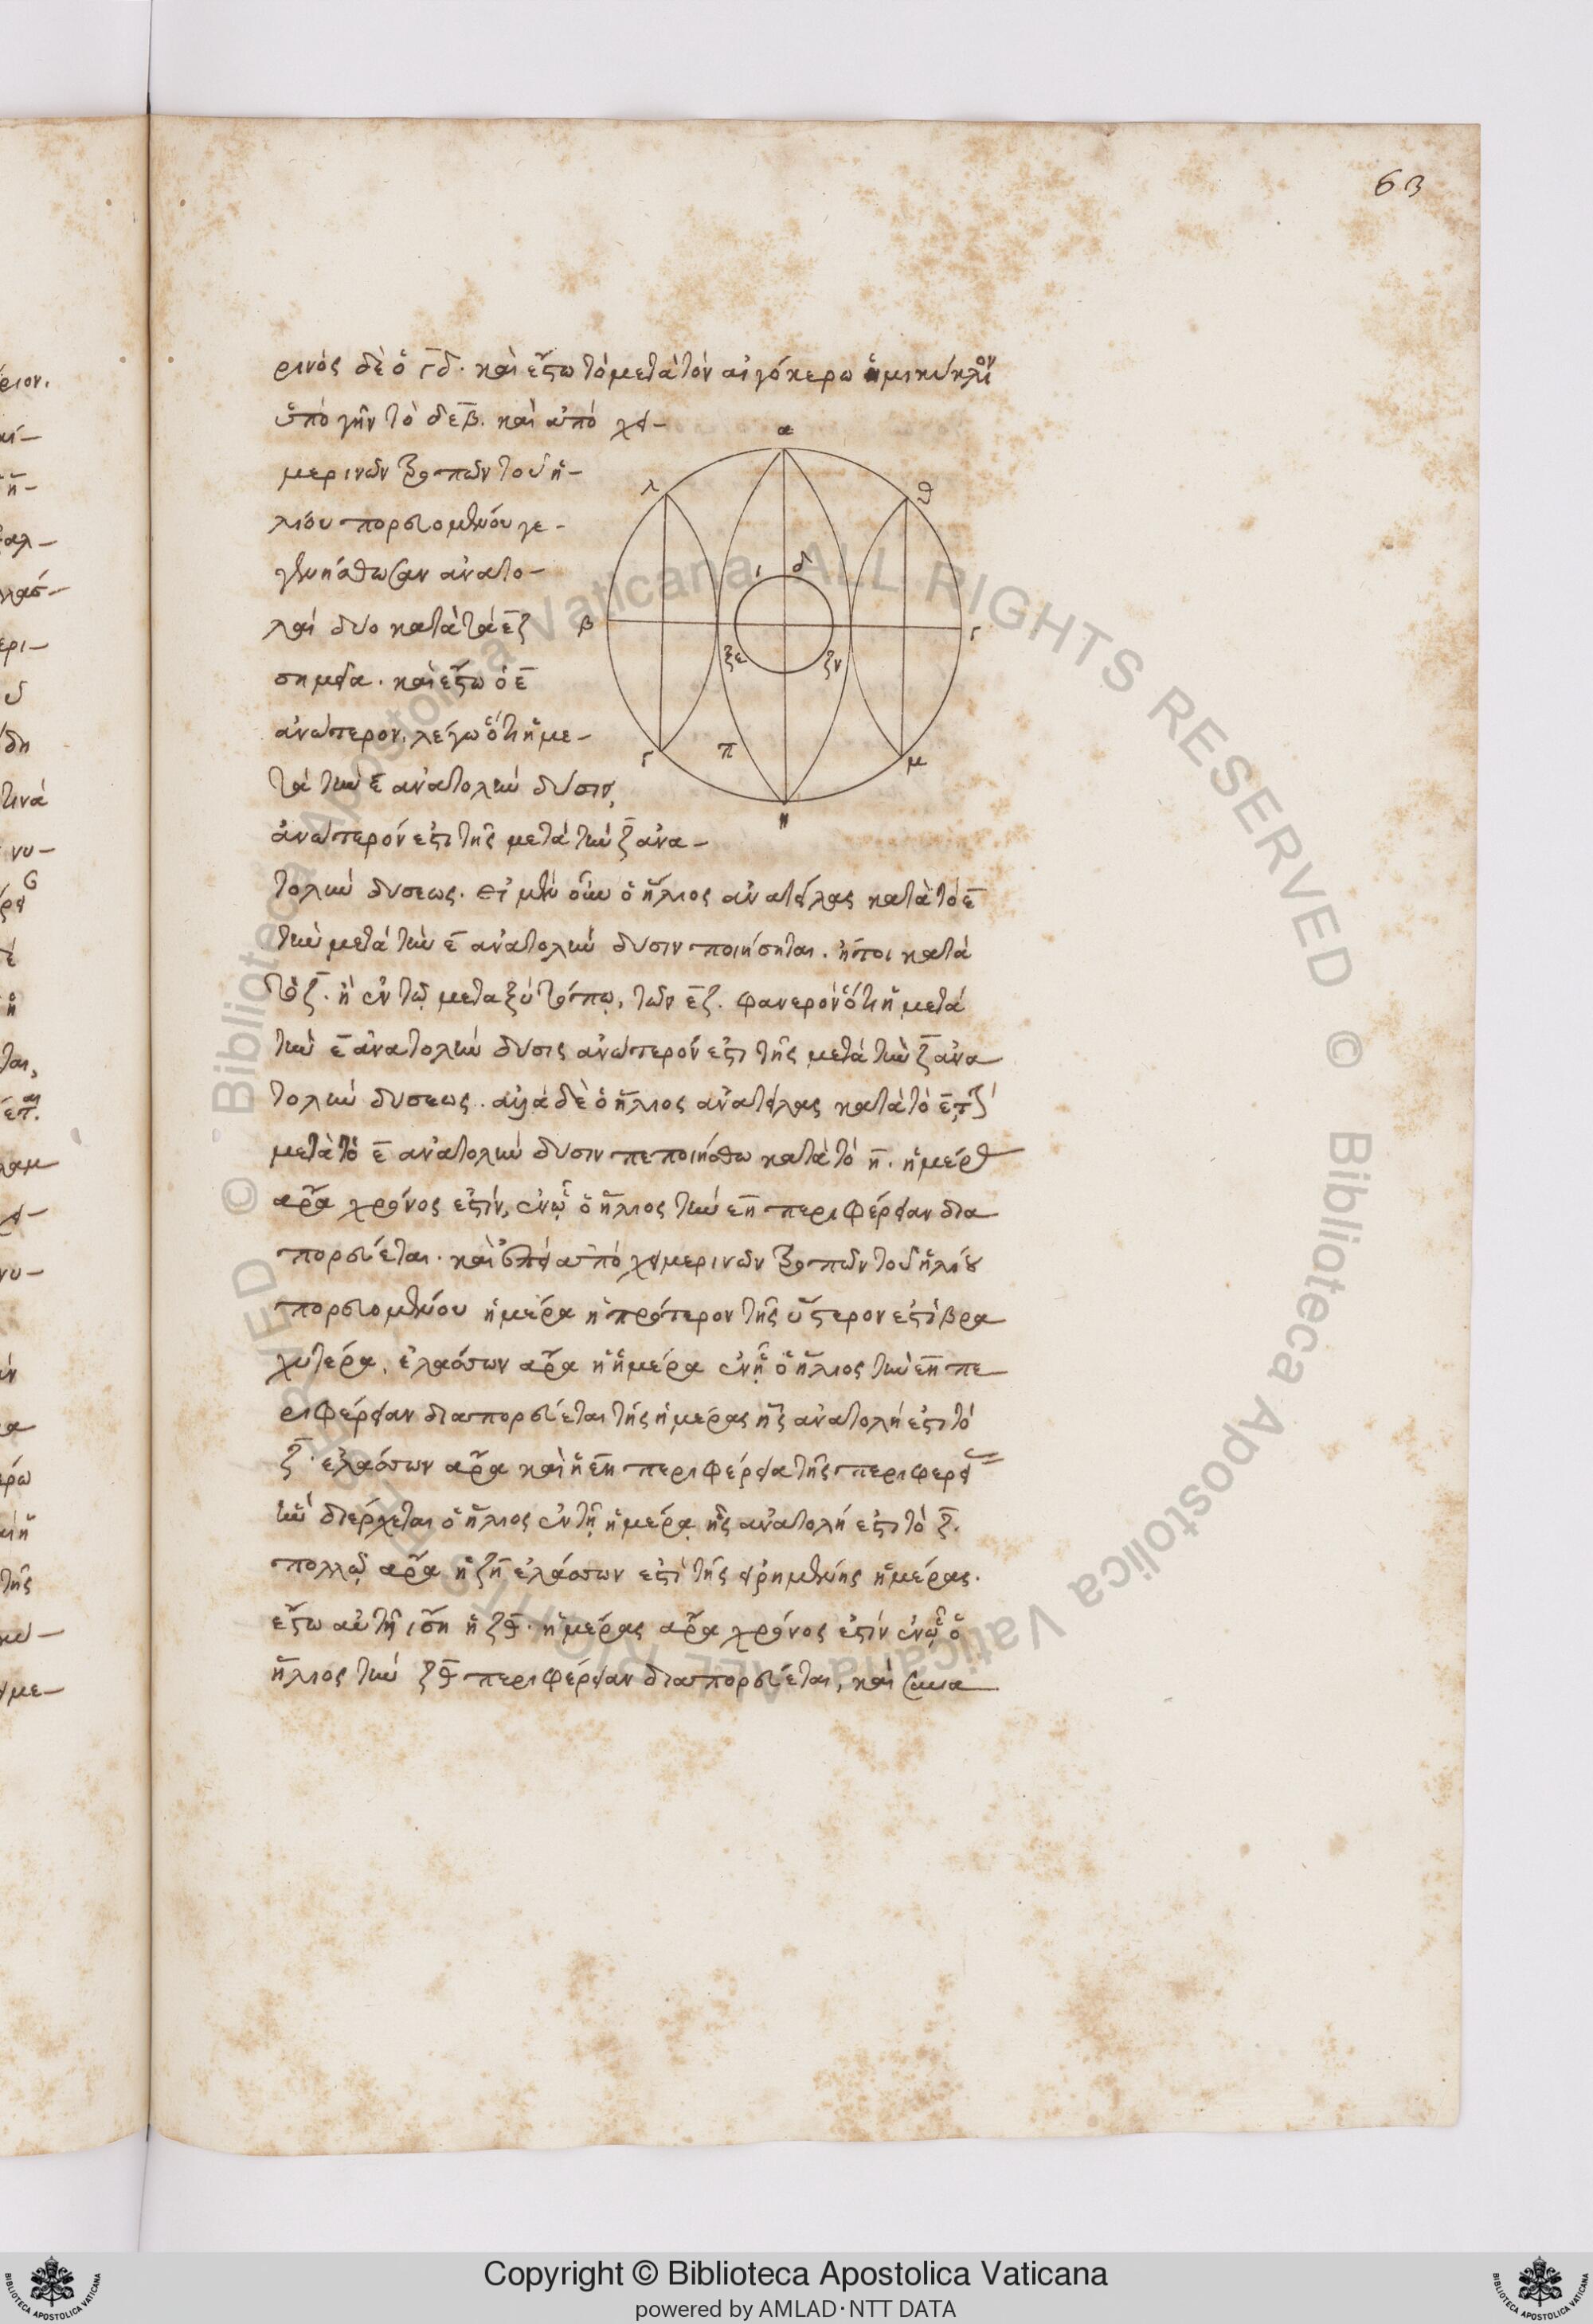 63
ρινὸς δὲ ὁ γδ. καὶ ἔστω τὸ μετὰ τὸν αἰγόκερω ἡμικύκλιον
ὑπὸ γῆν τὸ δεβ. καὶ ἀπὸ χει-
μερινῶν τροπῶν τοῦ ἡ-
λίου πορευομένου γε-
γενήσθωσαν ἀνατο-
λαὶ δύο κατὰ τὰ εζ
σημεῖα. καὶ ἔστω ὁ ε
ἀνώτερον. λέγω ὅτι ἡ με-
τὰ τὴν ε ἀνατολὴν δύσιν,
ἀνώτερόν ἐστι τῆς μετὰ τὴν ζ ἀνα-
τολὴν δύσεως. εἰ μὲν οὖν ὁ ἥλιος ἀνατείλας κατὰ τὸ ε
τὴν μετὰ τὴν ε ἀνατολὴν δύσιν ποιήσηται. ἤτοι κατὰ
τὸ ζ. ἢ ἐν τῷ μεταξὺ τόπῳ, τῶν εζ. φανερὸν ὅτι ἡ μετὰ
τὴν ε ἀνατολὴν δύσις ἀνώτερόν ἐστι τῆς μετὰ τὴν ζ ἀνα
τολὴν δύσεως. ἀλλὰ δὲ ὁ ἥλιος ἀνατείλας κατὰ τὸ ε
μετὰ τὸ ε ἀνατολὴν δύσιν πεποιήσθω κατὰ τὸ η. ἡμέρας
ἄρα χρόνος ἐστίν, ἐν ᾧ ὁ ἥλιος τὴν εη περιφέρειαν δια
πορεύεται. καὶ ἐπεὶ ἀπὸ χειμερινῶν τροπῶν τοῦ ἡλίου
πορευομένου ἡμέρα ἡ πρότερον τῆς ὕστερον ἐστὶ βρα
χυτέρα. ἐλάσσων ἄρα ἡ ἡμέρα ἐν ᾗ ὁ ἥλιος τὴν εη πε
ριφέρειαν διαπορεύεται τῆς ἡμέρας ἧς ἀνατολή ἐστι τὸ
ζ. ἐλάσσων ἄρα καὶ ἡ εη περιφέρεια τῆς περιφερείας
ἣν διέρχεται ὁ ἥλιος ἐν τῇ ἡμέρᾳ ἧς ἀνατολή ἐστι τὸ ζ.
πολλῷ ἄρα ἡ ζη ἐλάσσων ἐστὶ τῆς εἰρημένης ἡμέρας.
ἔστω αὐτῇ ἴση ἡ ζθ. ἡμέρας ἄρα χρόνος ἐστίν ἐν ᾧ ὁ
ἥλιος τὴν ζθ περιφέρειαν διαπορεύεται, καὶ
α
λ
θ
ι
δ
β
γ
ξε
ζν
γ
π
μ
η
Copyright © Biblioteca Apostolica Vaticana
powered by AMLAD·NTT DATA